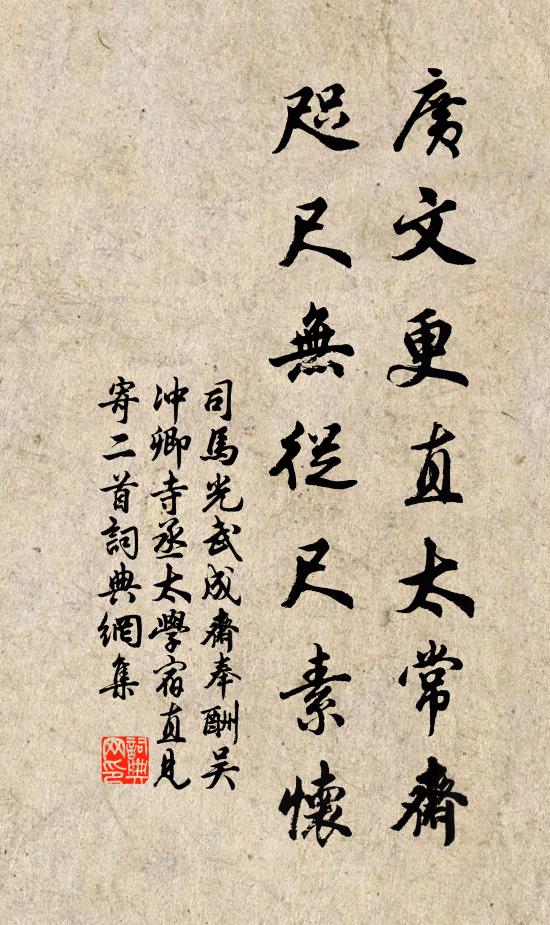 廣文更直太常齋
咫尺無從尺素懷
司馬光武成齋奉酬吴
冲卿寺丞太學宿直見
寄二首詞典網集
詞典
网印